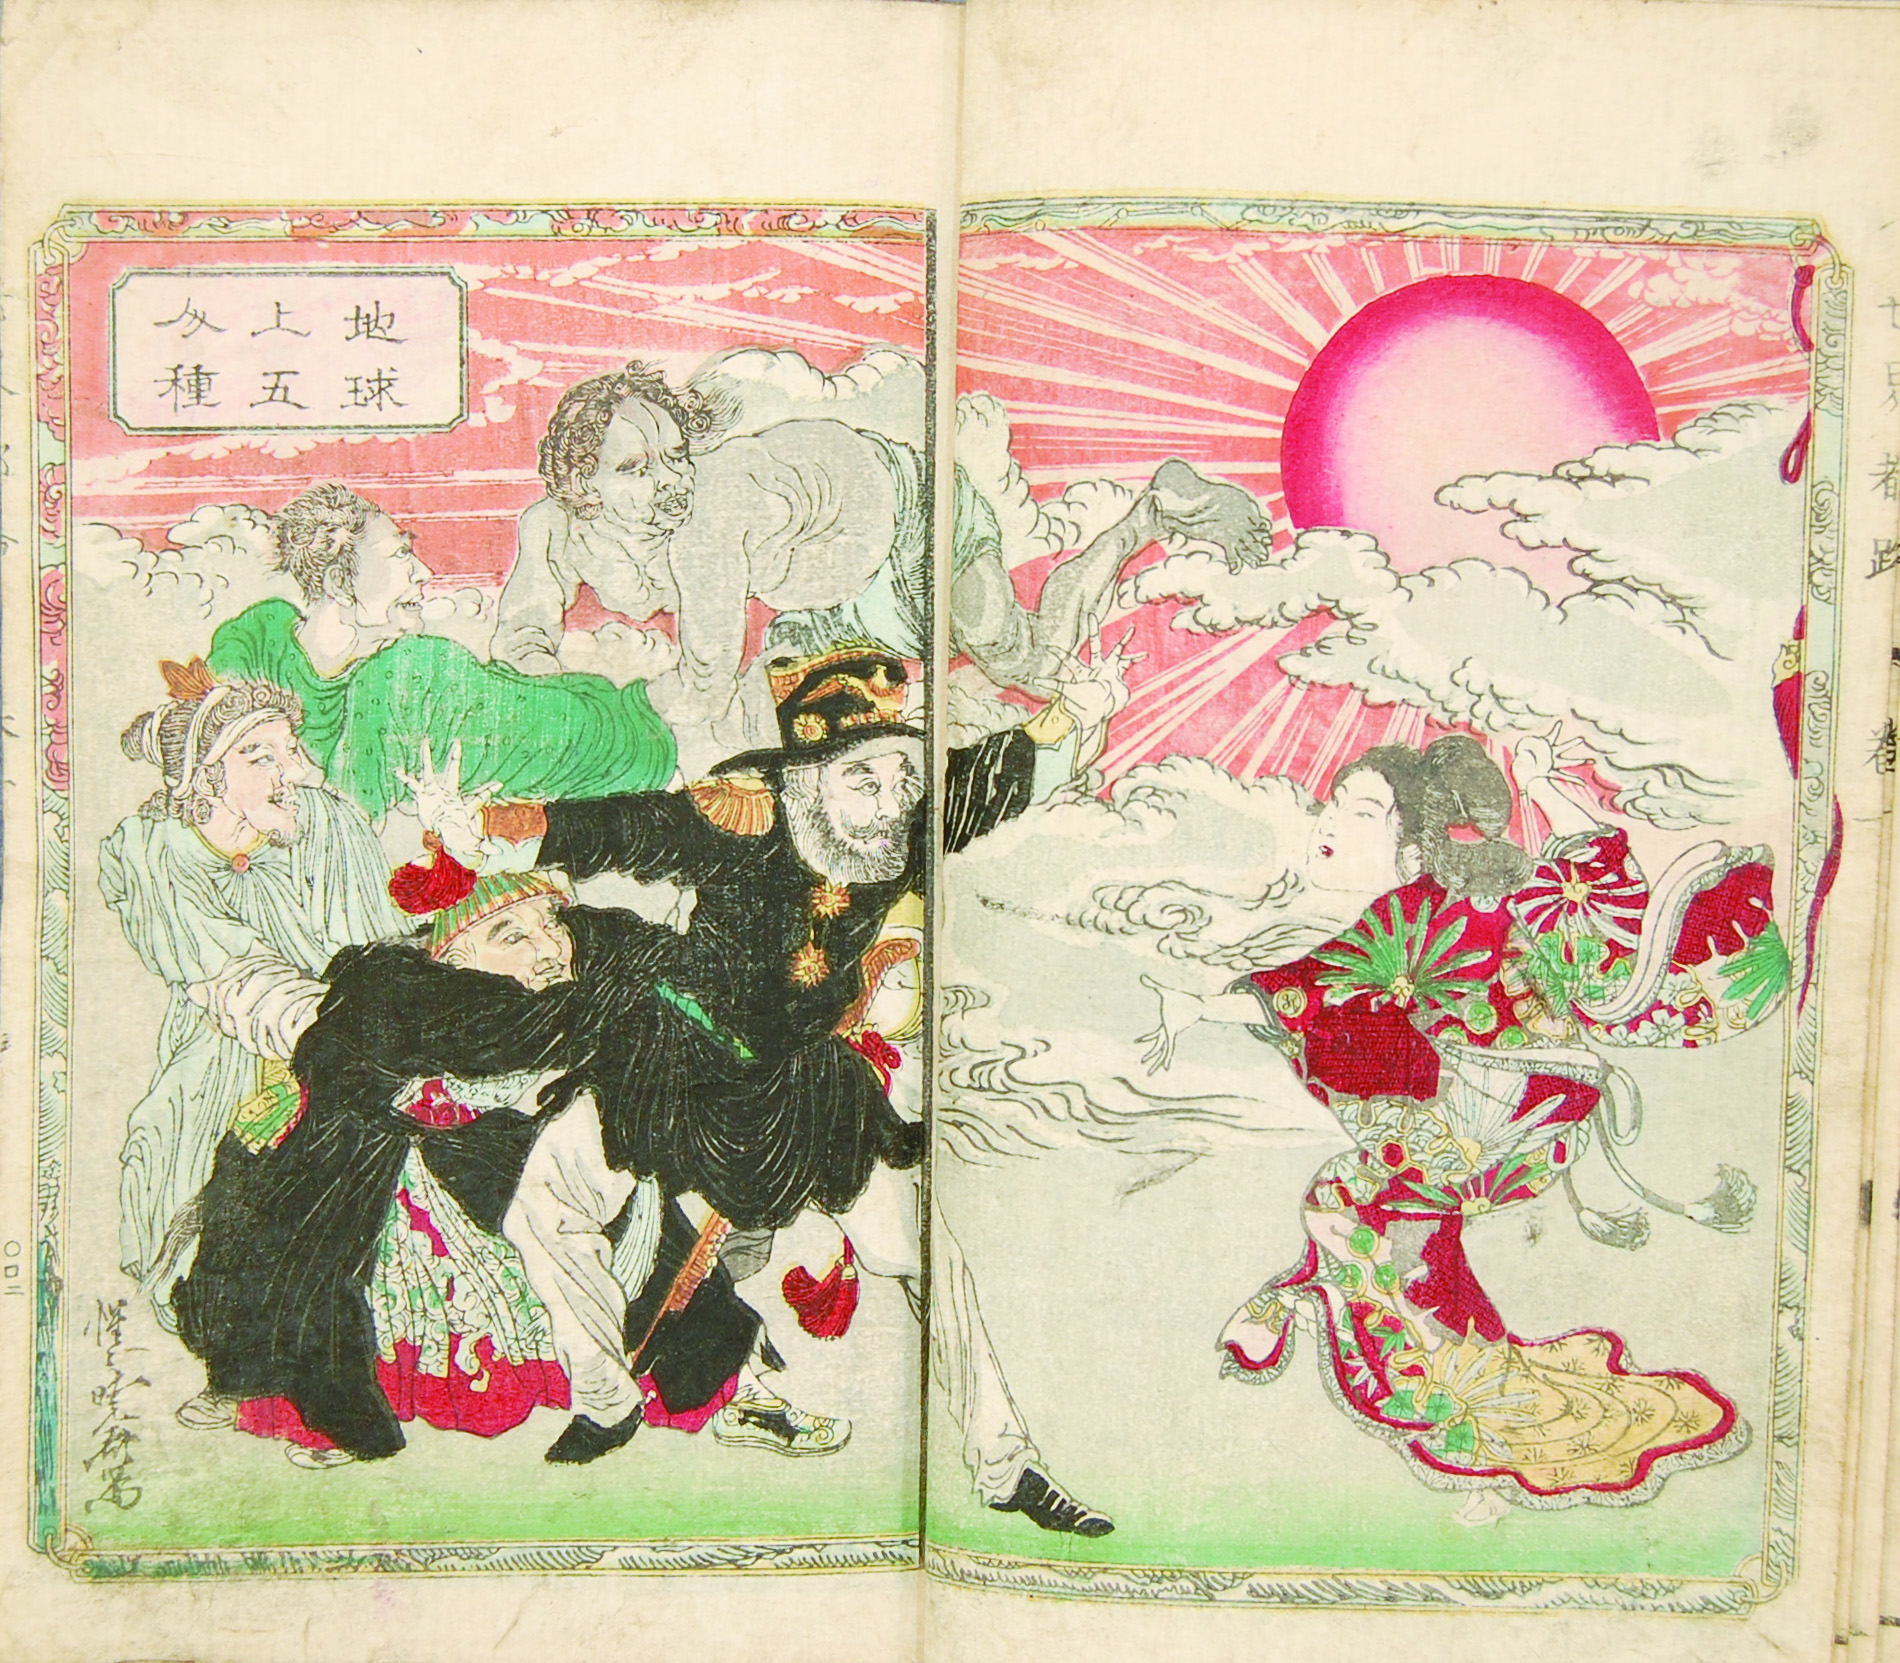 世界都路 巻一
地球
上五
人種
惺々暁斎写